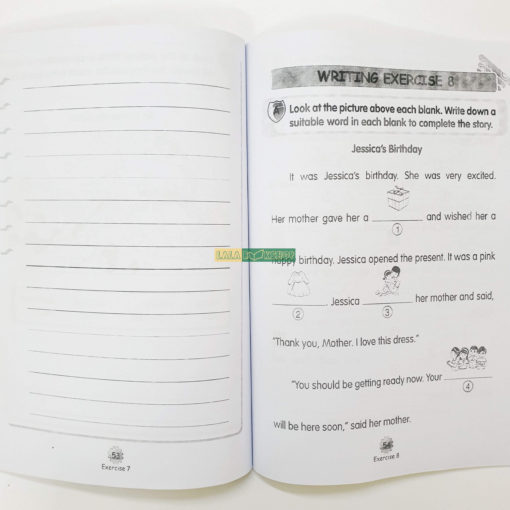 53
Exercise 7
WRITING EXERCISE 8
Look at the picture above each blank. Write down a
suitable word in each blank to complete the story.
Jessica's Birthday
It was Jessica's birthday. She was very excited.
Her mother gave her a and wished her a
1
happy birthday. Jessica opened the present. It was a pink
Jessica her mother and said,
2 3
"Thank you, Mother. I love this dress."
"You should be getting ready now. Your
4
will be here soon," said her mother.
54
Exercise 8